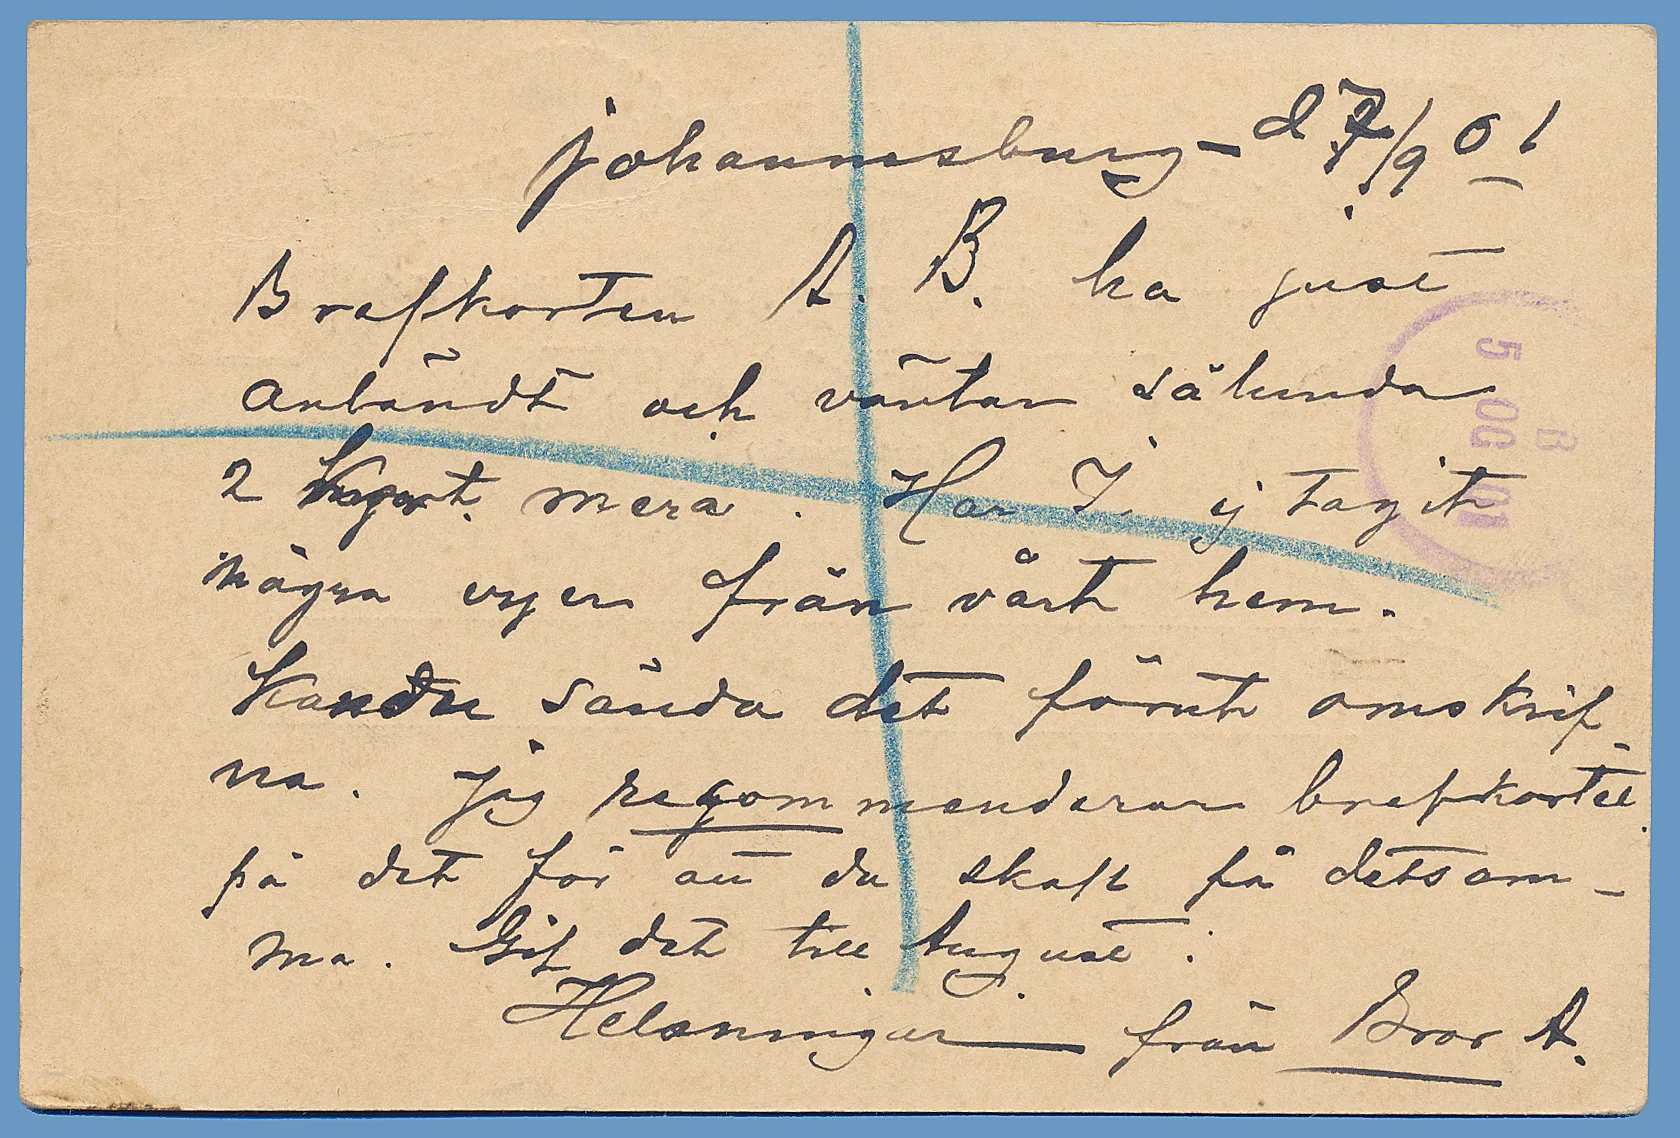 Johannesburg - d 7/9 01
Brefkorten A. B. ha just
anländt och väntar sålunda
2 mera. Har I ej tagit
några vyer från vårt hem.
Kan du sända det förut omskrif
na. Jag regommenderar brefkortet
på det för att du skall få detsam-
ma. Gif det till August.
Helsningar från Bror A.
B
5 OC 01